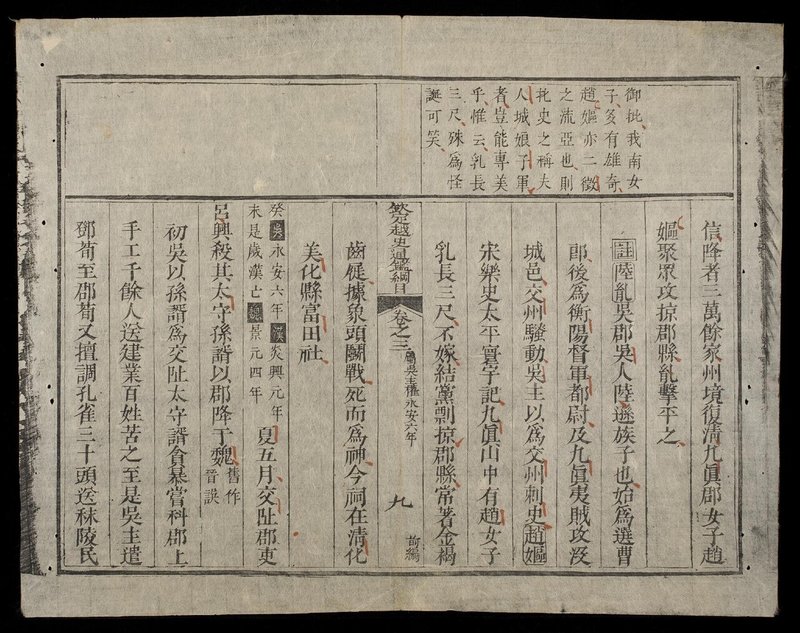 御批我南女
子多有雄奇
趙嫗亦二徵
之流亞也則
北史之稱夫
人城娘子軍
者豈能專美
乎惟云乳長
三尺殊爲怪
誕可笑
信降者三萬餘家州境復清九眞郡女子趙
嫗聚眾攻掠郡縣胤擊平之
註陸胤吳郡吳人陸遜族子也始爲選曹
郎後爲衡陽督軍都尉及九眞夷賊攻没
城邑交州騷動吳主以爲交州刺史趙嫗
宋樂史太平寰宇記九眞山中有趙女子
乳長三尺不嫁結黨剽掠郡縣常著金褐
欽定越史通鑑綱目 卷之三 屬吳 永安六年 九 前編
齒屣據象頭鬬戰死而爲神今祠在清化
美化縣富田社
癸吳永安六年漢炎興元年
未是歲漢亡魏景元四年
夏五月交阯郡吏
呂興殺其太守孫諝以郡降于魏
舊作
晉誤
初吳以孫諝爲交阯太守諝貪暴嘗科郡上
手工千餘人送建業百姓苦之至是吳主遣
鄧荀至郡荀又擅調孔雀三十頭送秣陵民